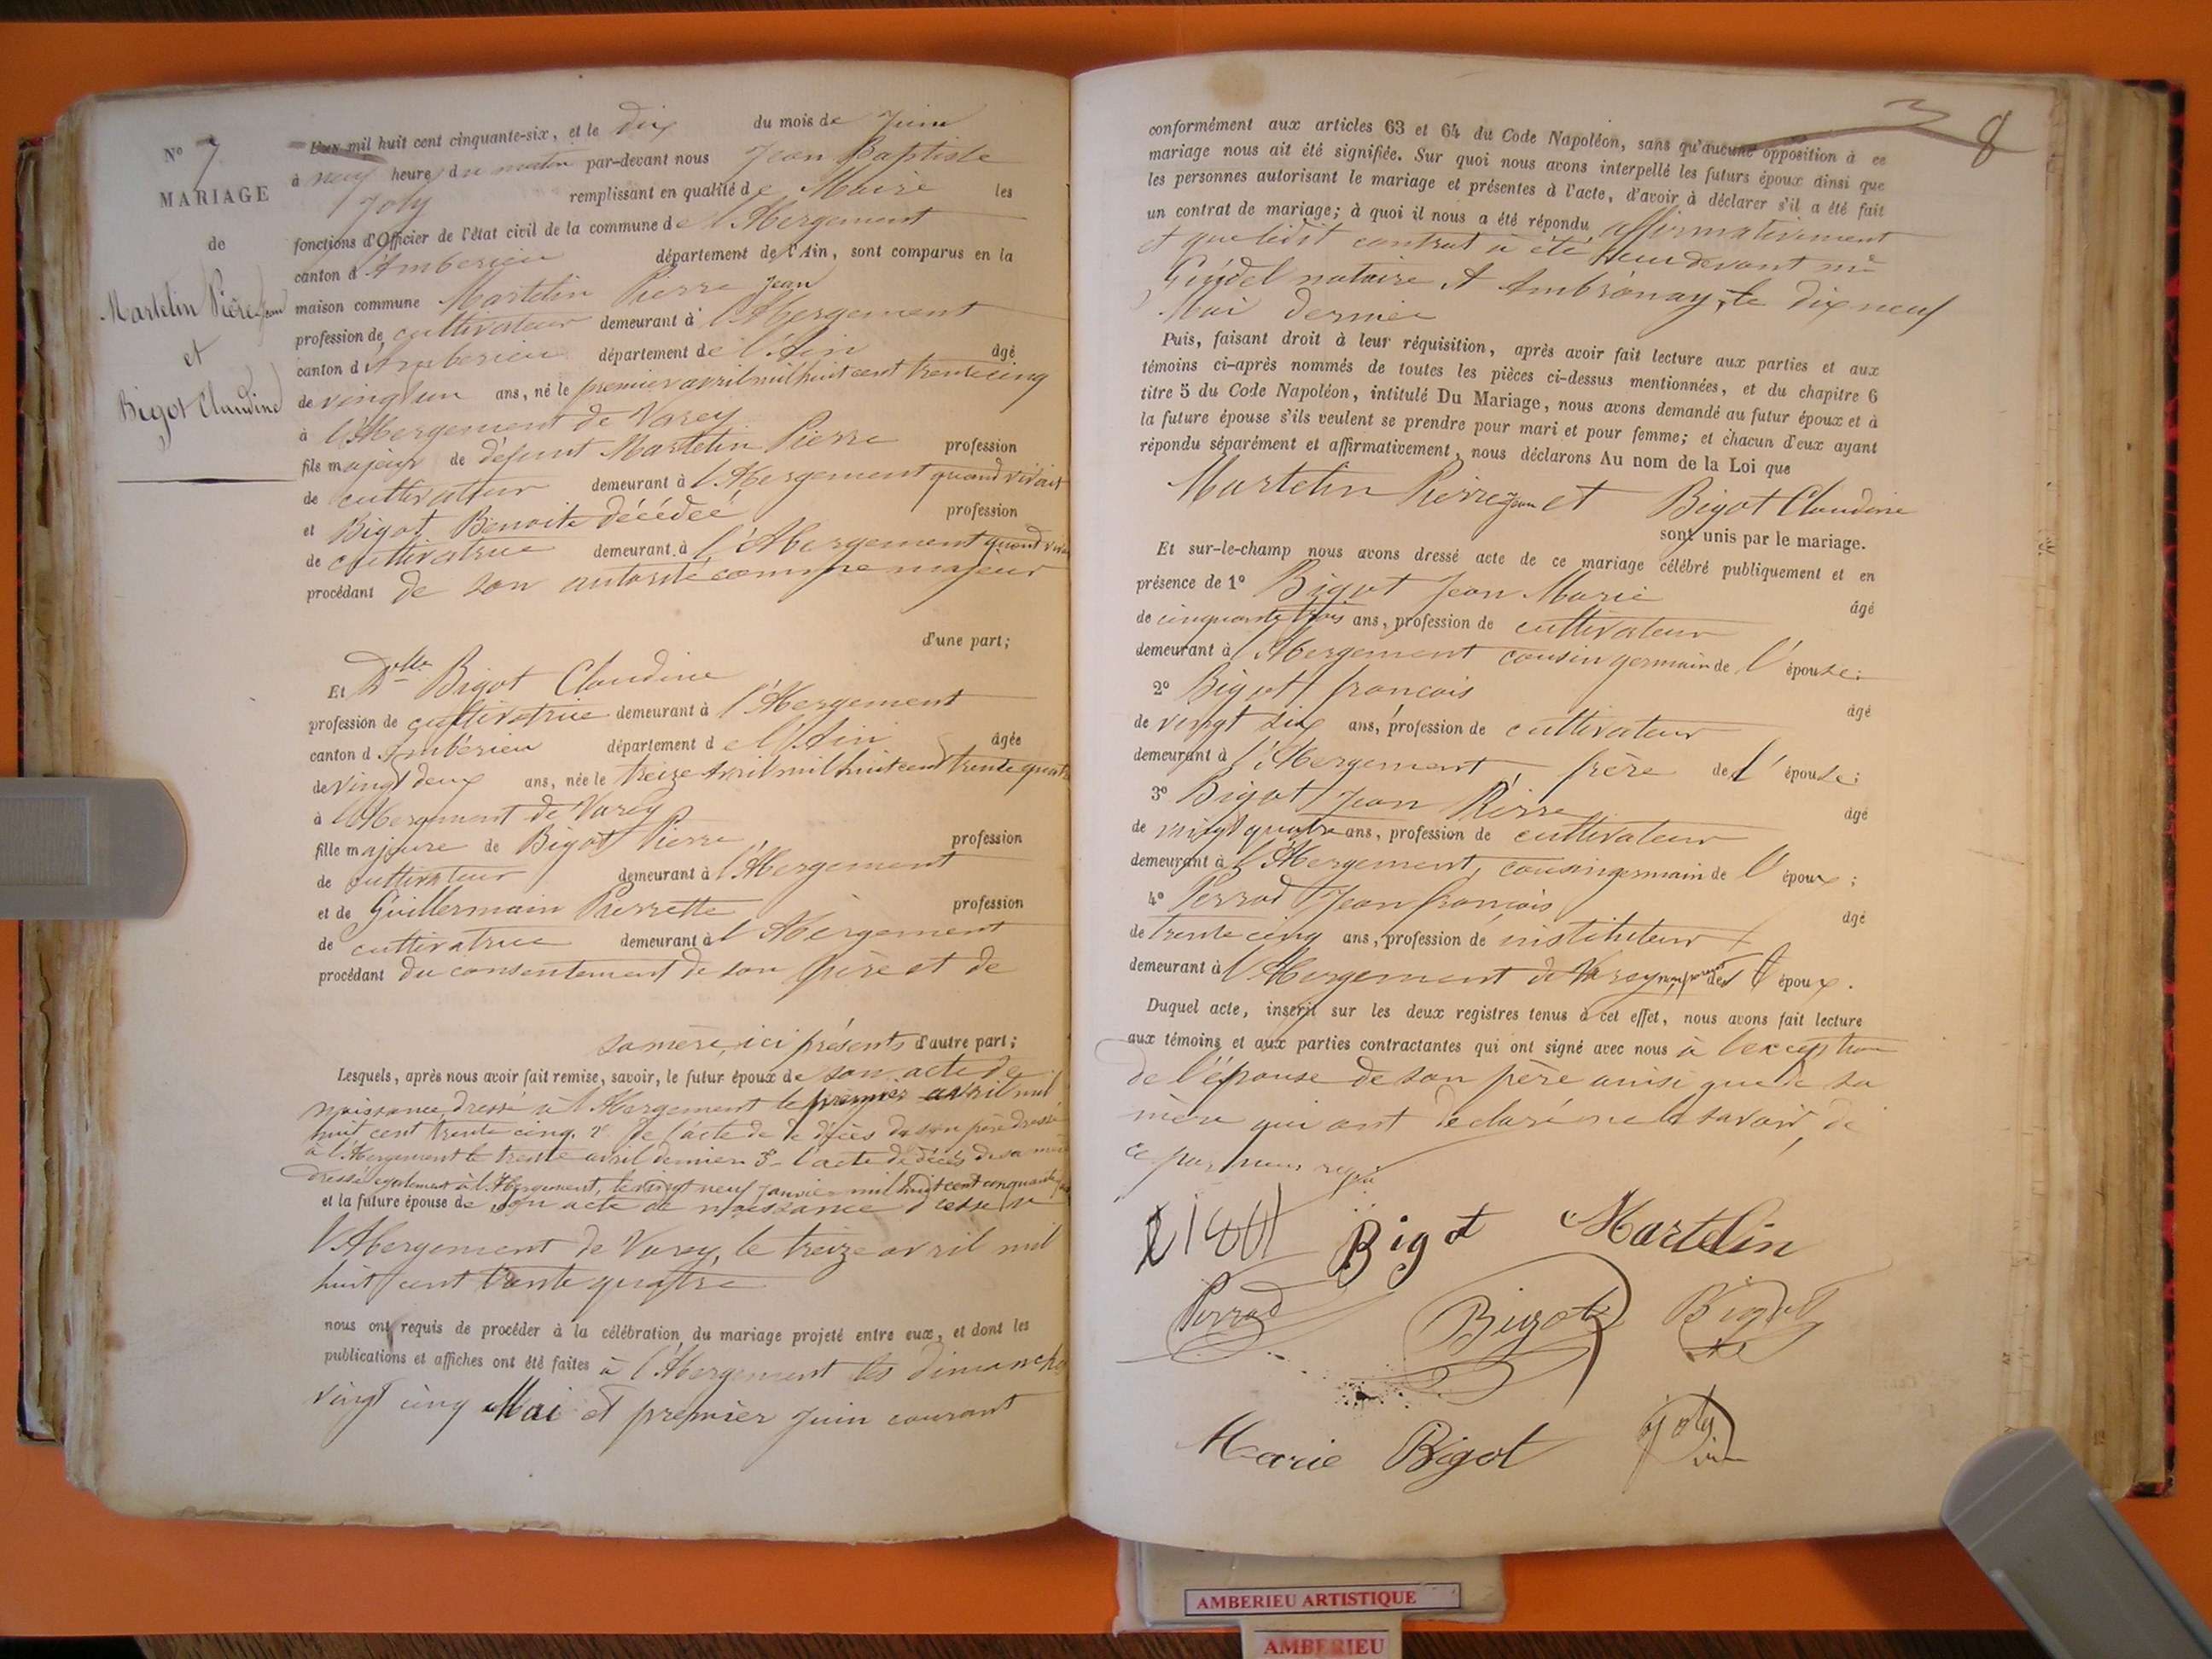 N° 7
MARIAGE
de
Martelin Pierre Jean
et
Bigot Claudine
L'an mil huit cent cinquante-six, et le dix du mois de Juin
à neuf heure du matin par-devant nous Jean Baptiste
Joly remplissant en qualité de Maire les
fonctions d'Officier de l'état civil de la commune de l'Abergement
canton d'Amberieu département de l'Ain, sont comparus en la
maison commune Martelin Pierre Jean
profession de cultivateur demeurant à l'Abergement
canton d'Amberieu département de l'Ain âgé
de vingt un ans, né le premier avril mil huit cent trente cinq
à l'Abergement de Varey
fils majeur de défunt Martelin Pierre profession
de cultivateur demeurant à l'Abergement quand vivait
et Bigot Benoite décédée profession
de cultivatrice demeurant à l'Abergement quand
procédant de son autorité comme majeur
d'une part;
Et Dlle Bigot Claudine
profession de cultivatrice demeurant à l'Abergement
canton d'Amberieu département de l'Ain âgée
de vingt deux ans, née le treize avril mil huit cent trente quatre
à l'Abergement de Varey
fille majeure de Bigot Pierre profession
de cultivateur demeurant à l'Abergement
et de Guillermain Pierrette profession
de cultivatrice demeurant à l'Abergement
procédant du consentement de son père et de
sa mère, ici présents d'autre part;
Lesquels, après nous avoir fait remise, savoir, le futur époux de son acte de
naissance dressé à l'Abergement le premier avril mil
huit cent trente cinq. 2° de l'acte de décès de son père dressé
à l'Abergement le trente avril dernier 3° l'acte de décès de sa mère
dressé également à l'Abergement, le vingt neuf janvier mil huit cent cinquante
et la future épouse de son acte de naissance dressé à
l'Abergement de Varey, le treize avril mil
huit cent trente quatre
nous ont requis de procéder à la célébration du mariage projeté entre eux, et dont les
publications et affiches ont été faites à l'Abergement les dimanches
vingt cinq Mai et premier Juin courant
8
conformément aux articles 63 et 64 du Code Napoléon, sans qu'aucune opposition à ce
mariage nous ait été signifiée. Sur quoi nous avons interpellé les futurs époux ainsi que
les personnes autorisant le mariage et présentes à l'acte, d'avoir à déclarer s'il a été fait
un contrat de mariage; à quoi il nous a été répondu affirmativement
et que ledit contrat a été reçu devant me
notaire à Ambronay, le dix neuf
Mai dernier
Puis, faisant droit à leur réquisition, après avoir fait lecture aux parties et aux
témoins ci-après nommés de toutes les pièces ci-dessus mentionnées, et du chapitre 6
titre 5 du Code Napoléon, intitulé Du Mariage, nous avons demandé au futur époux et à
la future épouse s'ils veulent se prendre pour mari et pour femme; et chacun d'eux ayant
répondu séparément et affirmativement, nous déclarons Au nom de la Loi que
Martelin Pierre Jean et Bigot Claudine
sont unis par le mariage.
Et sur-le-champ nous avons dressé acte de ce mariage célébré publiquement et en
présence de 1° Bigot Jean Marie âgé
de cinquante trois ans, profession de cultivateur
demeurant à l'Abergement cousin germain de l'épouse;
2° Bigot françois âgé
de vingt six ans, profession de cultivateur
demeurant à l'Abergement frère de l'épouse;
3° Bigot Jean Pierre âgé
de vingt quatre ans, profession de cultivateur
demeurant à l'Abergement, cousin germain de l'époux;
4° Perrod Jean françois âgé
de trente cinq ans, profession de instituteur
demeurant à l'Abergement de Varey non parent de l'époux.
Duquel acte, inscrit sur les deux registres tenus à cet effet, nous avons fait lecture
aux témoins et aux parties contractantes qui ont signé avec nous à l'exception
de l'épouse de son père ainsi que de sa
mère qui ont déclaré ne le savoir, de
ce par nous requis
Bigot Martelin
Perrod Bigot Bigot
Marie Bigot Joly
AMBERIEU ARTISTIQUE
AMBERIEU